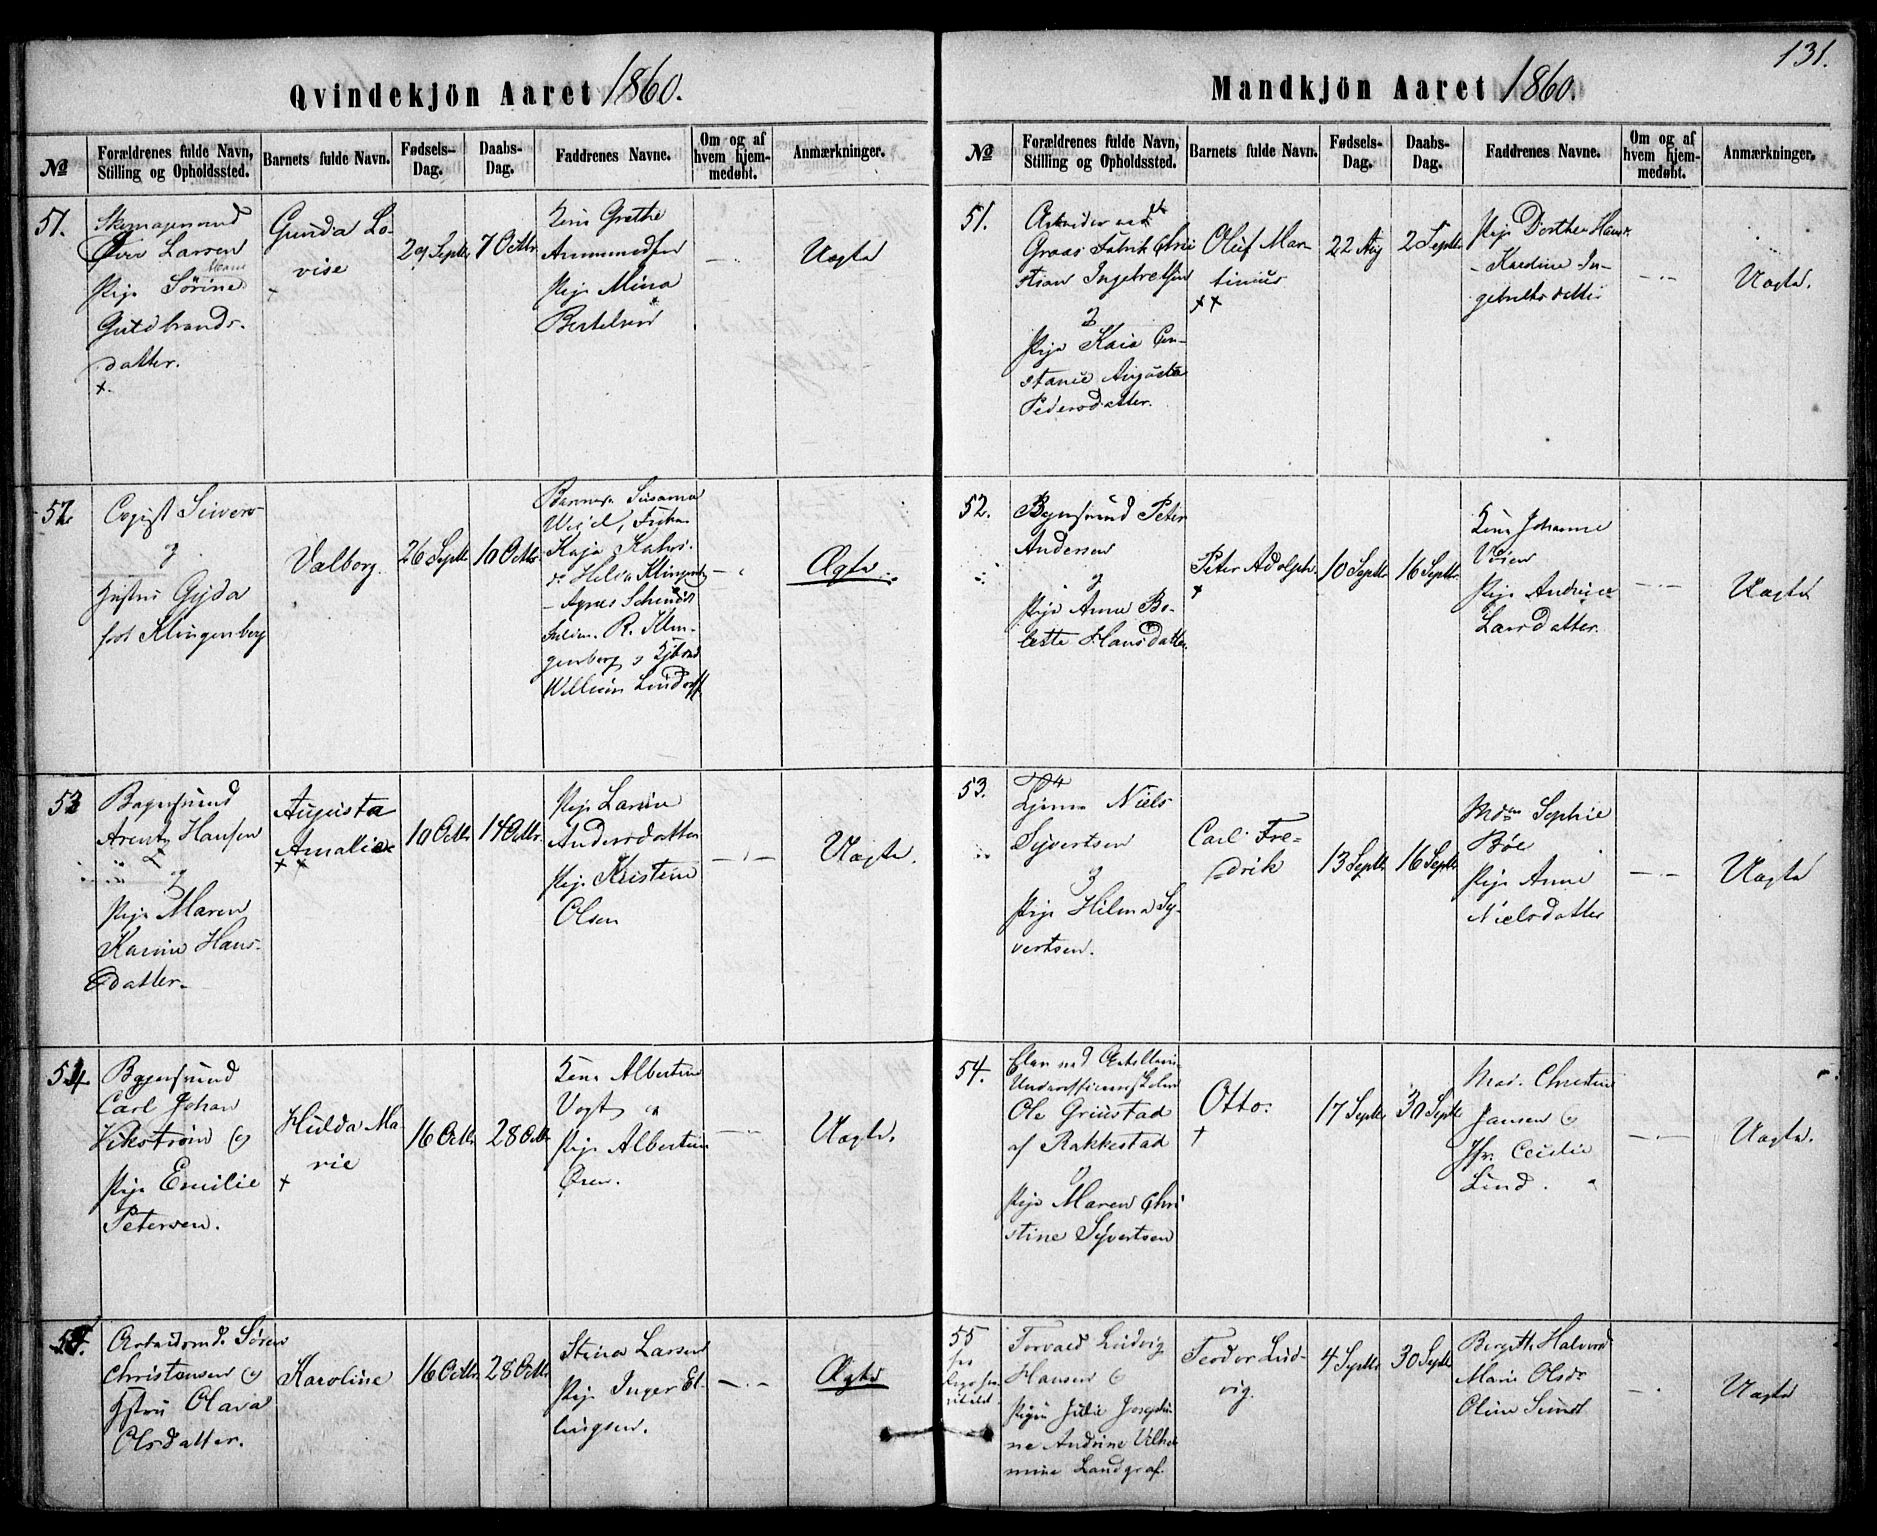 131.
Qvindekjön Aaret 1860.
№
Forældrenes fulde Navn, Stilling og Opholdssted.
Barnets fulde Navn.
Fødsels-Dag.
Daabs-Dag.
Faddrenes Navne.
Om og af hvem hjemmedøbt.
Anmærkninger.
51.
Larsen
Pige Sørine
Guldbrands-
datter.
Gunda Lo-
vise
29 Septbr
7 Octbr.
Grethe
Pige Mina
Bertelsen
Uægte
52
Sivers
og
Hustru Gijda
født Klingenberg
Valborg.
26 Septbr
10 Octbr.
Susanna
Kaja
Helda Klingenb
Agnes
R. Klin-
genberg og
William Lindorff
Ægte
53
Bagersvend
Arent Hansen
og
Pige Maren
Karine Hans-
datter.
Augusta
Amalie
10 Octbr
14 Octbr.
Pige Larine
Andersdatter
Pige Kristine
Olsen
Uægte.
54.
Bagersvend
Carl Johan
Vikstrøm og
Pige Emilie
Petersen.
Hilda Ma
rie
16 Octbr
28 Octbr
Albertine
Vogt
Pige Albertine
Uægte.
55.
Arbeidsmd. Søren
Christensen og
Hstru Olava
Olsdatter.
Karoline
16 Octbr.
28 Octbr.
Stina Larsen
Pige Inger El-
lingsen.
Ægte
Mandkjön Aaret 1860.
№
Forældrenes fulde Navn, Stilling og Opholdssted.
Barnets fulde Navn.
Fødsels-Dag.
Daabs-Dag.
Faddrenes Navne.
Om og af hvem hjemmedøbt.
Anmærkninger.
51.
Arbeider ved
Graas Fabrik Chri
stian Ingebretsen
og
Pige Kaia Con-
stance Augusta
Pedersdatter.
Oluf Mar-
tinius
22 Aug
2 Septbr
Pige Dorthea Hans
Karoline In-
gebretsdatter
Uægte.
52.
Peter
Andersen
og
Pige Anne Bo-
lette Hansdatter.
Peter Adolph.
10 Septbr
16 Septbr.
Johanne
Pige Andrine
Larsdatter.
Uægte
53.
Niels
Syvertsen
og
Pige Hilma Sy-
vertsen.
Carl Fre-
drik
13 Septbr
16 Septbr
Sophie
Bøe
Pige Anne
Nielsdatter
Uægte
54.
Elev ved
Ole Griistad
af Rakkestad
og
Pige Maren Chri
stine Syvertsen
Otto.
17 Septbr
30 Septbr
Mad. Christine
Jansen og
Jfr. Cecilie
Lind.
Uægte.
55
Torvald Ludvig
Hansen og
Pigen Julie Josephi
ne Andrine Vilhel
mine Landgraf.
Teodor Lud-
vig.
4 Septbr
30 Septbr
Halvors
Marie Olsdr
Oline Lund
Uægte